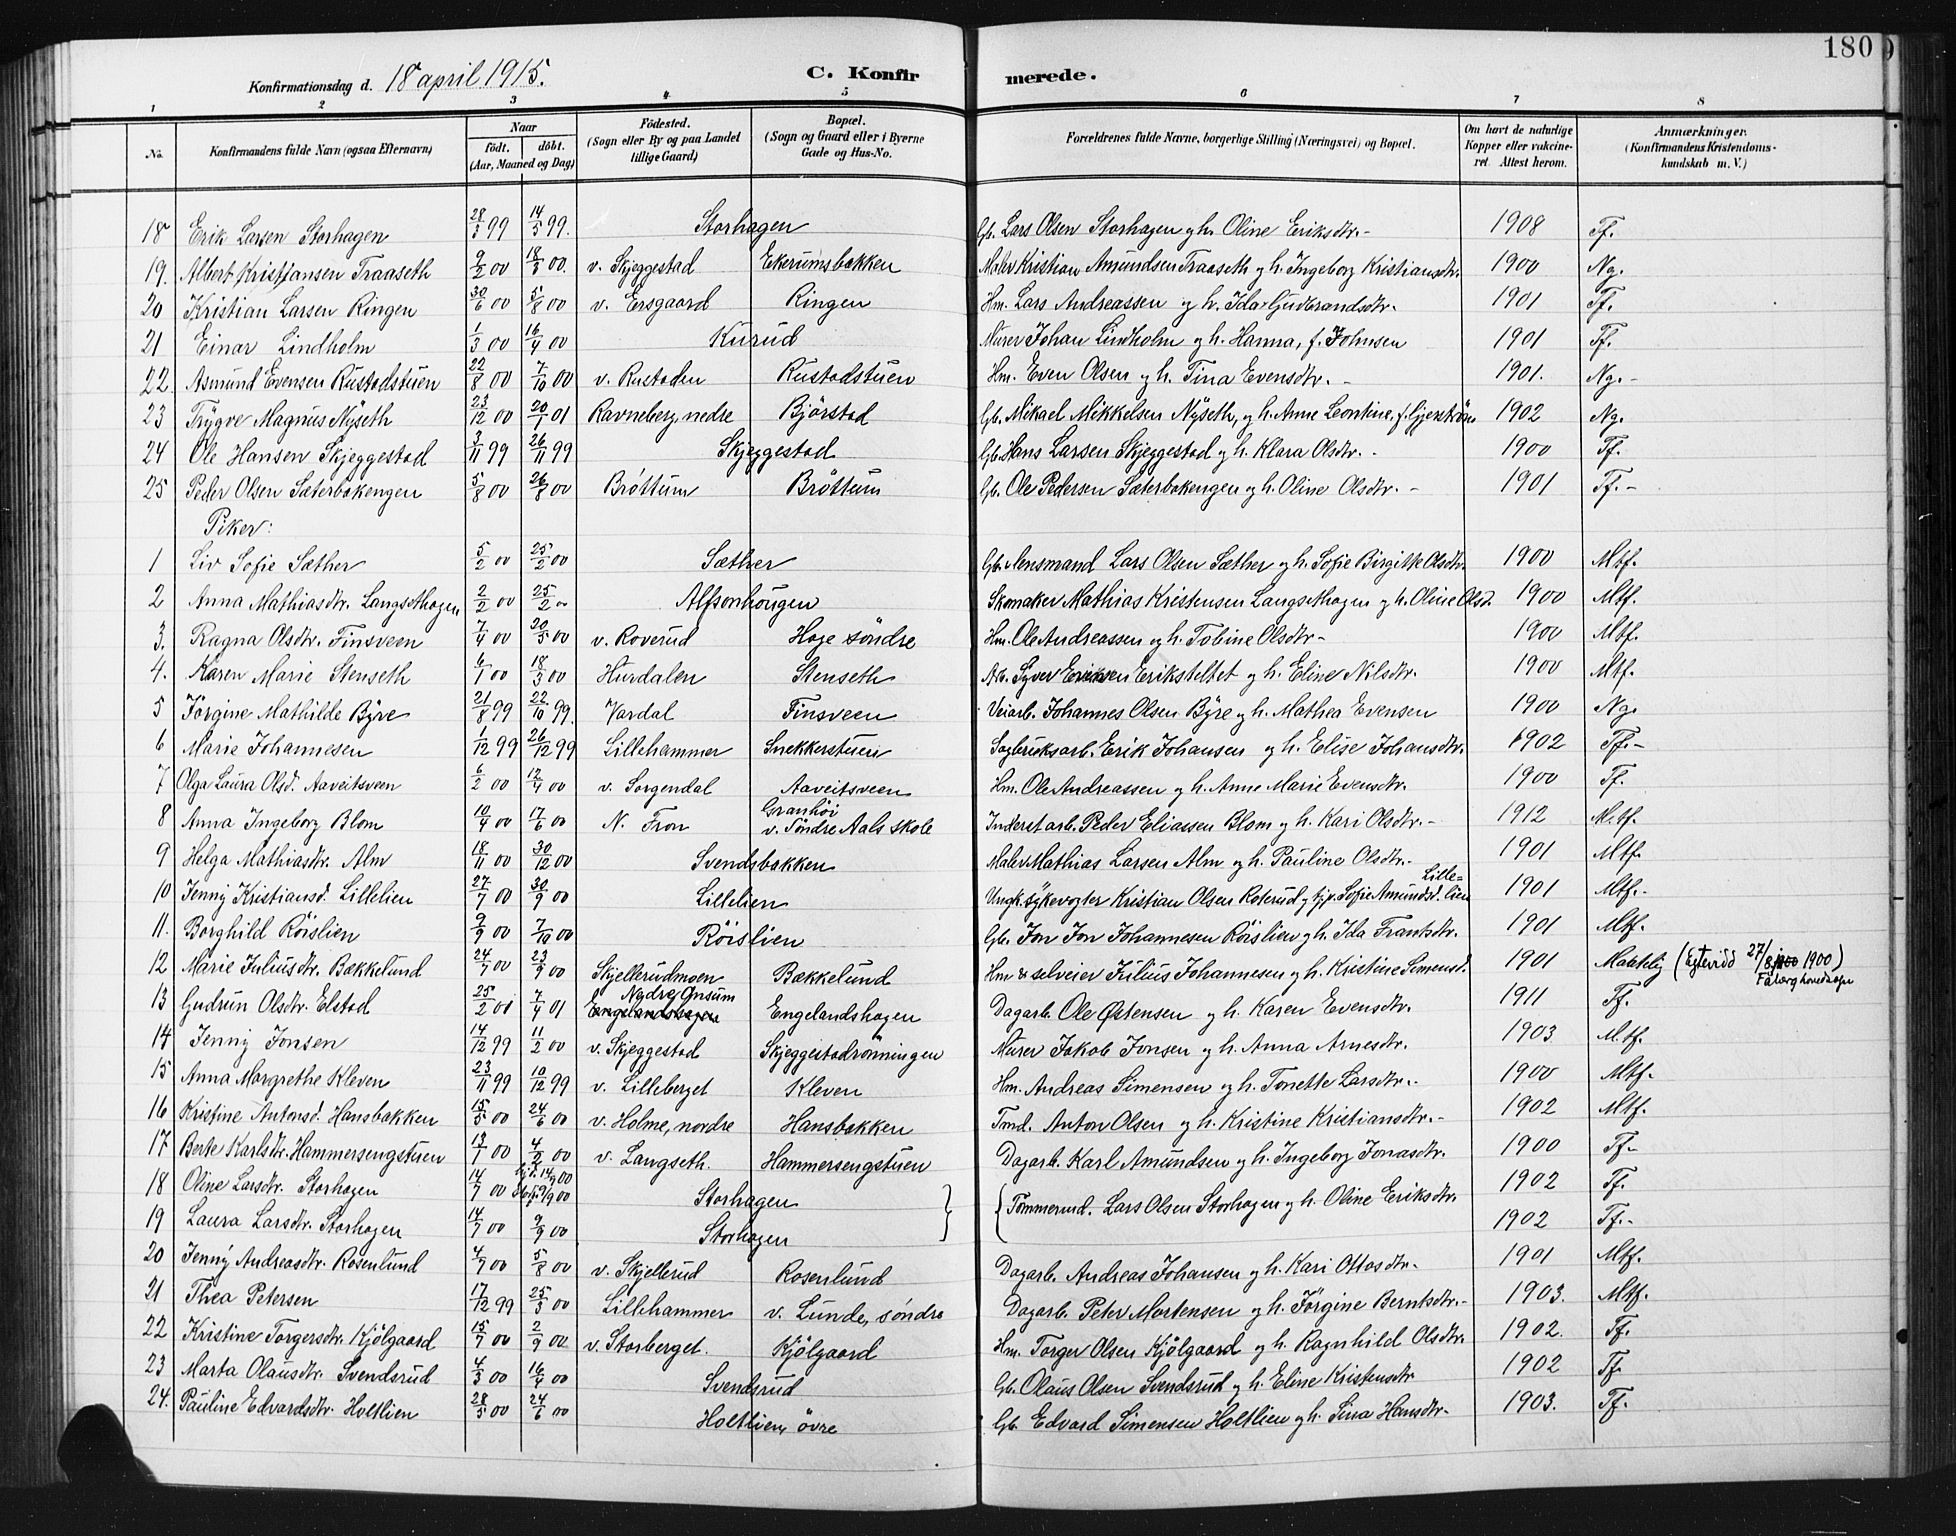 180
Konfirmationsdag d. 18 april 1915.
C. Konfirmerede.
1 2 3 4 5 6 7 8
No. Konfirmandens fulde Navn (ogsaa Efternavn) Naar født. døbt. (Aar, Maaned og Dag) Fødested. (Sogn eller By og paa Landet tillige Gaard) Bopæl. (Sogn og Gaard eller i Byerne Gade og Hus-No. Forældrenes fulde Navne, borgerlige Stilling (Næringsvei) og Bopæl. Om havt de naturlige Kopper eller vakcineret. Attest herom. Anmærkninger. (Konfirmandens Kristendomskundskab m. V.)
18 Erik Larsen Storhagen 28/3 99 14/5 99. Storhagen Gb. Lars Olsen Storhagen og h. Oline Eriksdtr.- 1908 Tf.
19. Albert Kristjansen Traaseth 9/2 00 18/3 00. v. Skjeggestad Ekerumsbakken Maler Kristian Amundsen Traaseth og h. Ingeborg Kristiansdtr. 1900 Ng.
20 Kristian Larsen Ringen 30/6 00 5/8 00 v. Ersgaard Ringen Hm. Lars Andreassen og h. Ida Gudbrandsdtr. 1901 Tf.
21 Einar Lindholm 1/3 00 16/4 00 Kurud Murer Johan Lindholm og h. Hanna, f. Johnsen 1901 Tf.
22. Asmund Evensen Rustadstuen 22/8 00 7/10 00 v. Rustaden Rustadstuen Hm. Even Olsen og h. Tina Evensdtr. - 1901. Ng.-
23 Trygve Magnus Nyseth 23/12 00 20/1 01 Ravneberg, nedre Bjørstad Gb. Mikael Mikkelsen Nyseth, og h. Anne Leontine, f. 1902 Ng.
24 Ole Hansen Skjeggestad 3/11 99 26/11 99 Skjeggestad Gb. Hans Larsen Skjeggestad og h. Klara Olsdtr. - 1900 Tf.
25 Peder Olsen Sæterbakengen 5/8 00 26/8 00 Brøttum Brøttum Gb. Ole Pedersen Sæterbakengen og h. Oline Olsdtr. - 1901 Tf.-
Piker:
1 Liv Sofie Sæther 5/2 00 25/2 00 Sæther Gb. Lensmand Lars Olsen Sæther og h. Sofie Birgitte Olsdtr. 1900 Mtf.
2 Anna Mathiasdtr. Langsethagen 2/2 00 25/2 00 Alfsonhougen Skomaker Mathias Kristensen Langsethagen og h. Oline Olsd. 1900 Mtf.
3. Ragna Olsdtr. Finsveen 7/4 00 20/5 00 v. Roverud Hage søndre Hm. Ole Andreassen og h. Tobine Olsdtr- 1900 Mtf.
4. Karen Marie Stenseth 6/1 00 18/3 00 Hurdalen Stenseth Arb. Syver Eriksen Erikstellet og h. Eline Nilsdtr. 1900 Mtf.
5 Jørgine Mathilde Byre 21/8 99 22/10 99. Vardal Finsveen Veiarb. Johannes Olsen Byre og h. Mathea Evensen 1900 Ng.
6 Marie Johannesen 1/12 99 26/12 99 Lillehammer Snekkerstuen Sagbruksarb. Erik Johansen og h. Elise Johansdtr. 1902 Tf.-
7 Olga Laura Olsd. Aaveitsveen 6/2 00 17/4 00 v. Sorgendal Aaveitsveen Hm. Ole Andreassen og h. Anne Marie Evensdtr. 1900 Tf.
8 Anna Ingeborg Blom 10/4 00 17/6 00 N. Fron Granhøi v. Søndre Aals skole Inderst arb. Peder Eliassen Blom og h. Kari Olsdtr.- 1912 Mtf.
9 Helga Mathiasdtr. Alm 18/11 00 30/12 00 Svendsbakken Maler Mathias Larsen Alm og h. Pauline Olsdtr.- 1901 Mtf.
10 Jenny Kristiansd. Lillelien 27/7 00 30/9 00 Lillelien Ungk. sykevogter Kristian Olsen Roterud og tj.p. Sofie Amundsd. Lillelien 1901 Mtf.-
11. Borghild Røislien 9/9 00 7/10 00 Røislien Gb. Jon Jon Johannesen Røislien og h. Ida Frantsdtr. 1901 Mtf.
12 Marie Juliusdtr. Bækkelund 24/7 00 23/9 00 Skjellerudmoen Bækkelund Hm & selveier Julius Johannesen og h. Kristine Simensd. 1901 Maatelig (Egtevidd 27/8 1900)
13 Gudrun Olsdtr. Elstad 25/2 01 7/4 01 Nydre Onsum Engelandshagen Engelandshagen Dagarb. Ole Østensen og h. Karen Evensdtr. 1911 Tf.
14 Jenny Jonsen 14/12 99 11/2 00 v. Skjeggestad Skjeggestadrønningen Murer Jakob Jonsen og h. Anna Arnesdtr. 1903 Mtf.
15 Anna Margrethe Kleven 23/11 99 10/12 99 v. Lilleberget Kleven Hm. Andreas Simensen og h. Tonette Larsdtr.. 1900 Mtf.
16 Kristine Antonsd. Hansbakken 15/5 00 24/6 00 v. Holme, nordre Hansbakken Tmd. Anton Olsen og h. Kristine Kristiansdtr.- 1902 Mtf.
17 Berte Karlsdtr. Hammersengstuen 13/1 00 4/2 00 v. Langseth. Hammersengstuen Dagarb. Karl Amundsen og h. Ingeborg Jonasdtr. 1900 Tf-
18 Oline Larsdtr. Storhagen 14/7 00 hjd. 14/7 00 9/9 00 Storhagen } { Tømmermd. Lars Olsen Storhagen og h. Oline Eriksdtr. 1902 Tf.
19 Laura Larsdtr. Storhagen 14/7 00 9/9 00 Storhagen 1902 Tf.-
20 Jenny Andreasdtr. Rosenlund 4/7 00 5/8 00 v. Skjellerud Rosenlund Dagarb. Andreas Johansen og h. Kari Ottosdtr. 1901 Mtf.
21 Thea Petersen 17/12 99 25/3 00 Lillehammer v. Lunde, søndre Dagarb. Peter Mortensen og h. Jørgine Berntsdtr.- 1903. Mtf.
22 Kristine Torgersdtr. Kjølgaard 15/7 00 2/9 00 v. Storberget. Kjølgaard Hm. Torger Olsen Kjølgaard og h. Ragnhild Olsdtr. 1902. Tf.
23 Marta Olausdtr. Svendsrud 4/3 00 16/4 00 Svendsrud Gb. Olaus Olsen Svendsrud og h. Eline Kristensdtr 1902 Tf
24. Pauline Edvardsdtr. Holtlien 28/5 00 24/6 00 Holtlien, øvre Gb. Edvard Simensen Holtlien og h. Sina Hansdtr- 1903. Tf.